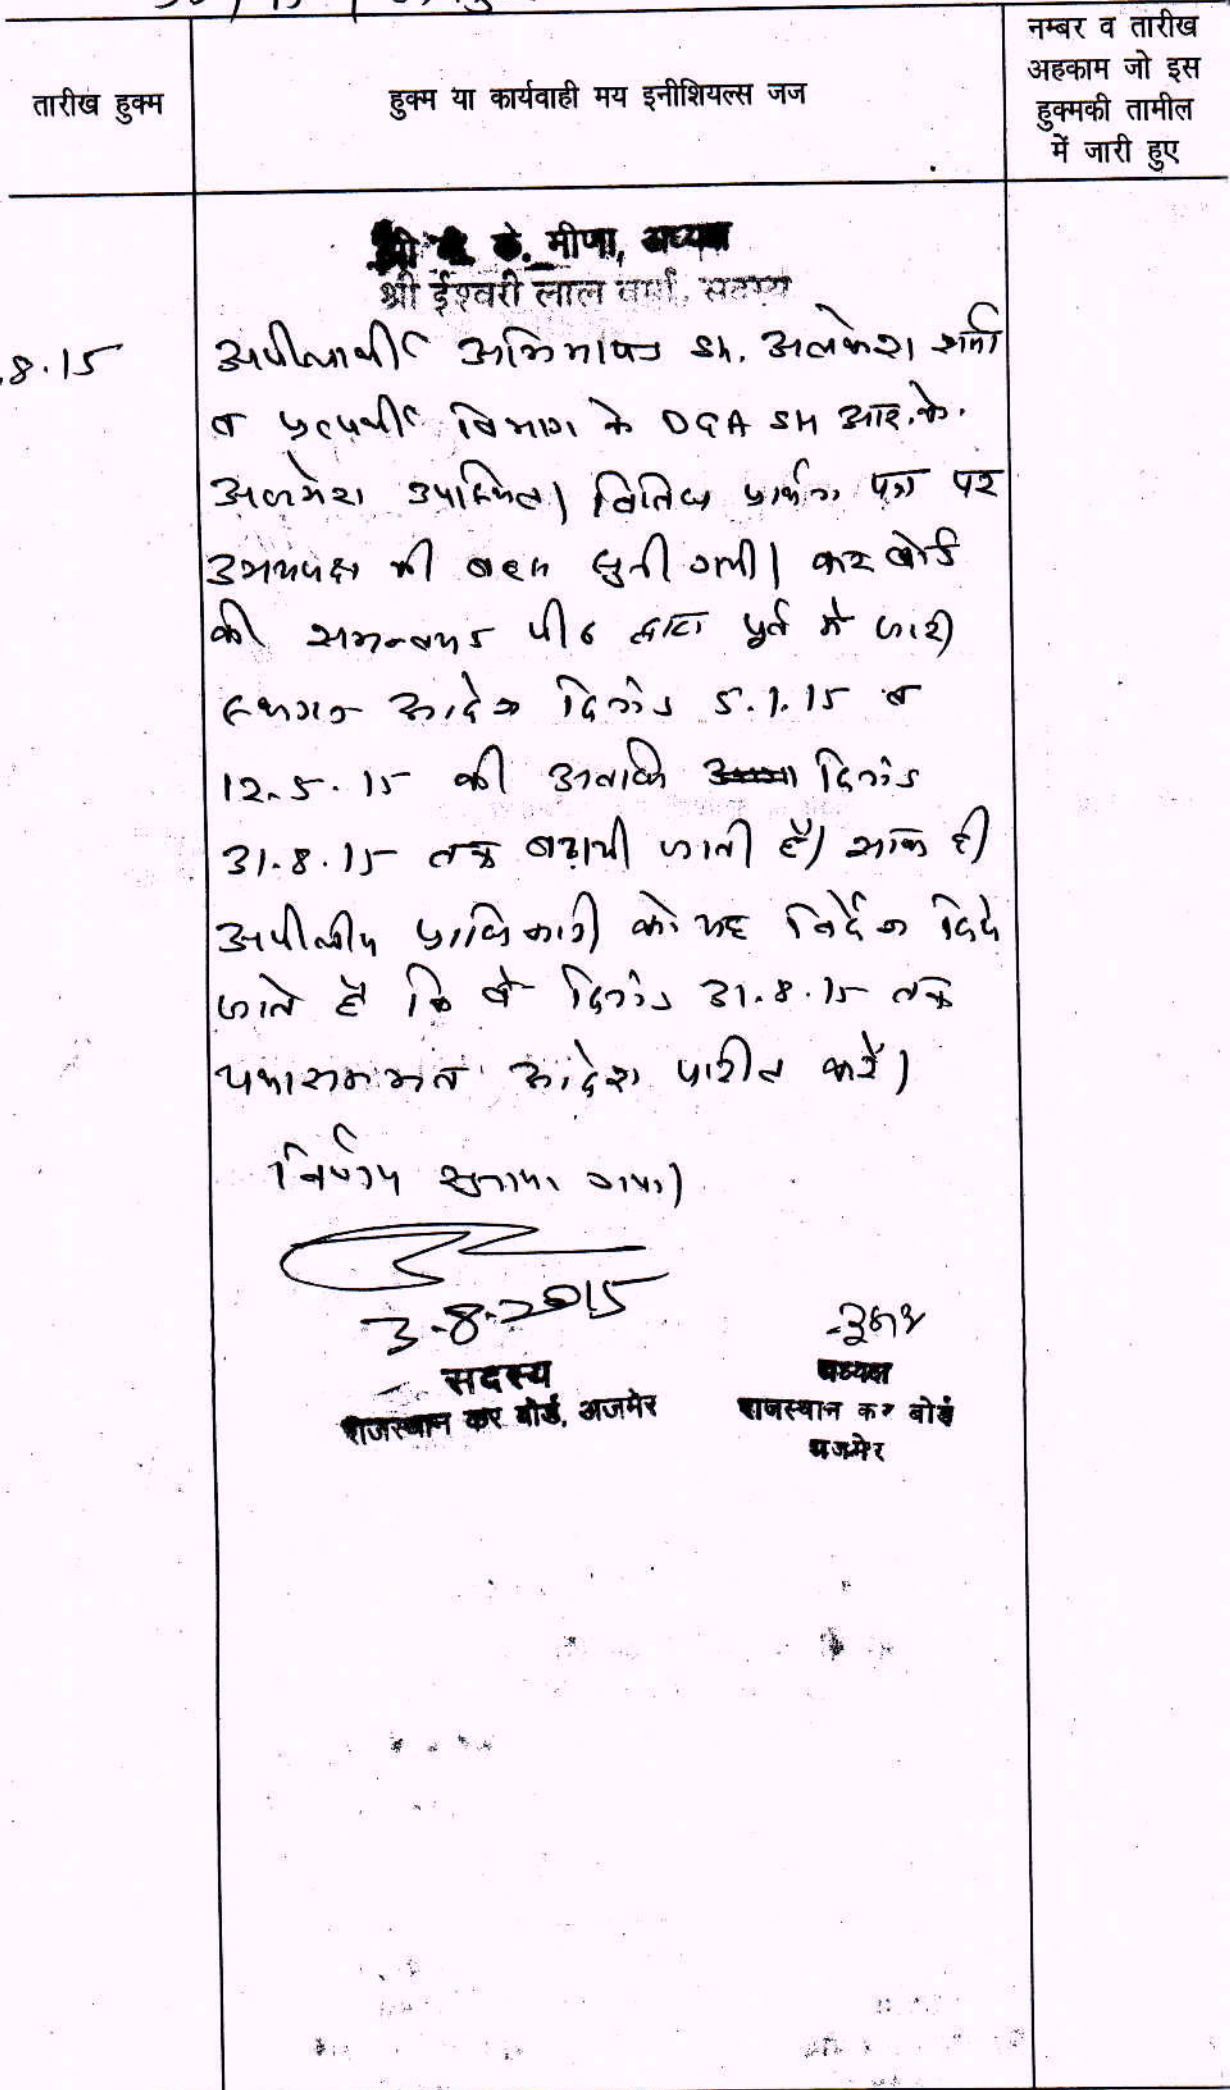 तारीख हुक्म
हुक्म या कार्यवाही मय इनीशियल्स जज
नम्बर व तारीख
अहकाम जो इस
हुक्मकी तामील
में जारी हुए
के. मीणा, अध्यक्ष
श्री ईश्वरी लाल वर्मा, सदस्य
8.15
अपीलार्थी अभिभाषक Sh. अलकेश शर्मा
व प्रत्यर्थी विभाग के DGA SH आर.के.
अजमेरा उपस्थित। विविध प्रार्थना पत्र पर
उभयपक्ष की बहस सुनी गयी। कर बोर्ड
की समन्वयक पीठ द्वारा पूर्व में जारी
स्थगन आदेश दिनांक 5.1.15 व
12.5.15 की अवधि दिनांक
31.8.15 तक बढ़ायी जाती है। साथ ही
अपीलीय प्राधिकारी को यह निर्देश दिये
जाते है कि वे दिनांक 31.8.15 तक
यथासम्भव आदेश पारित करें।
निर्णय सुनाया गया।
3-8-2015
सदस्य
राजस्थान कर बोर्ड, अजमेर
अध्यक्ष
राजस्थान कर बोर्ड
अजमेर